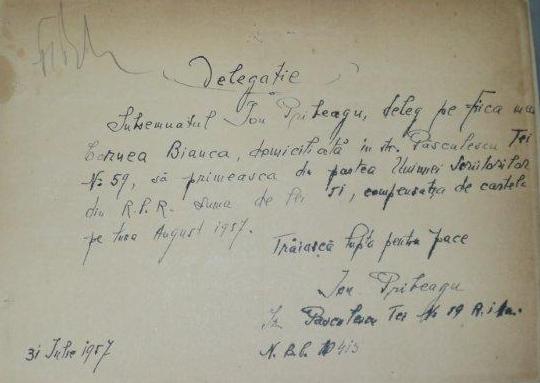 Delegație
Subsemnatul Ion Pribeagu, deleg pe fiica mea
Cornea Bianca, domiciliată în str. Pasculescu Tei
No 59, să primească din partea Uniunei Scriitorilor
din R.P.R. suma de lei 51, compensația de cartelă
pe luna August 1957.
Trăiască lupta pentru pace
Ion Pribeagu
Pasculescu Tei No 59
31 Iulie 1957